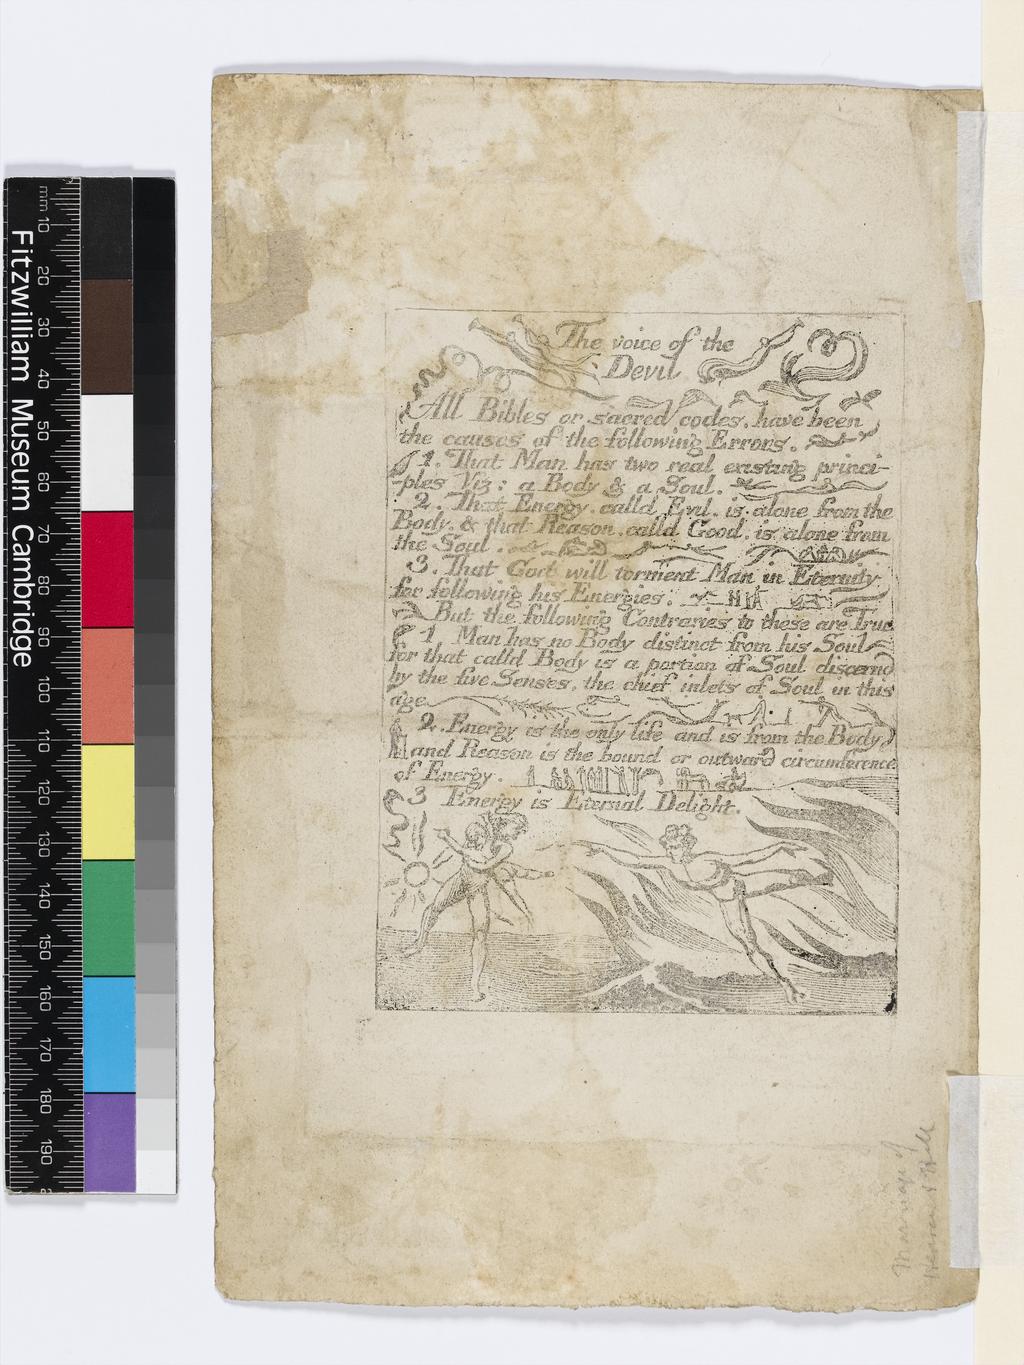 The voice of the
Devil
All Bibles or sacred codes. have been
the causes of the following Errors.
1. That Man has two real existing princi-
-ples Viz: a Body & a Soul.
2. That Energy. calld Evil. is alone from the
Body. & that Reason. calld Good. is alone from
the Soul.
3. That God will torment Man in Eternity
for following his Energies.
But the following Contraries to these are True
1. Man has no Body distinct from his Soul
for that calld Body is a portion of Soul discernd
by the five Senses. the chief inlets of Soul in this
age
2. Energy is the only life and is from the Body
and Reason is the bound or outward circumference
of Energy.
3 Energy is Eternal Delight.
Marriage of
Heaven & Hell
Fitzwilliam Museum Cambridge
mm 10 20 30 40 50 60 70 80 90 100 110 120 130 140 150 160 170 180 190